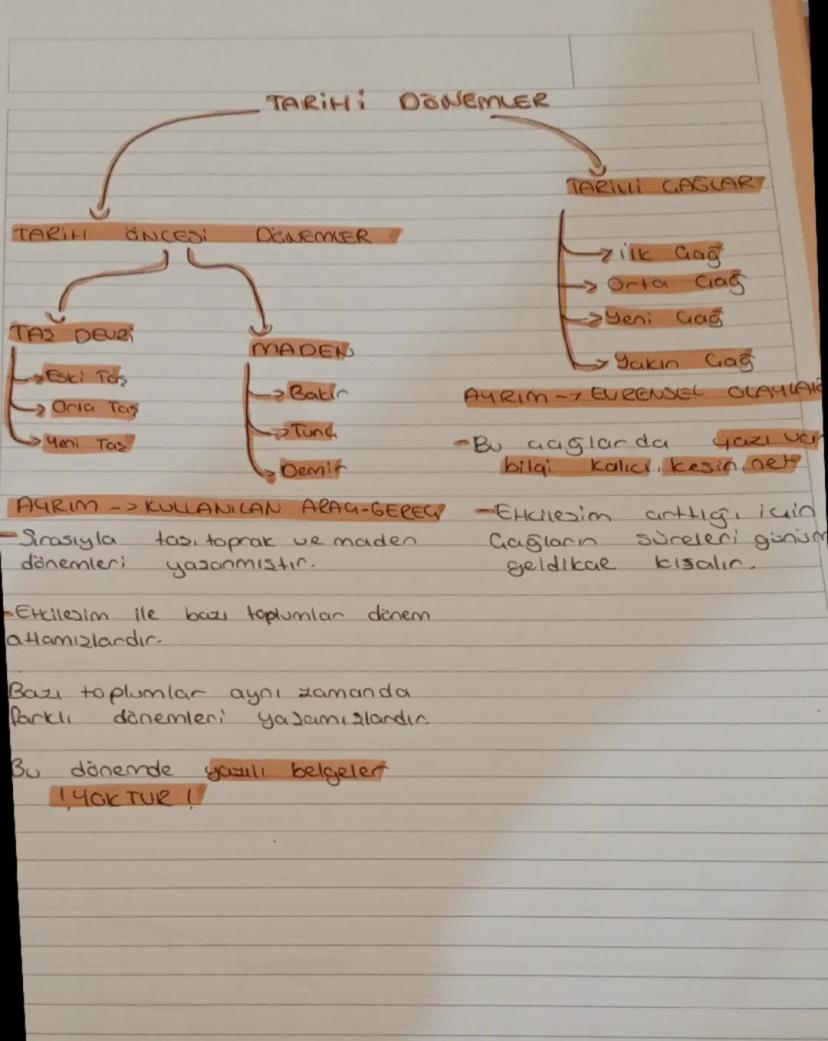 TARİHİ DÖNEMLER
TARİH ÖNCESİ DÖNEMLER
TAŞ DEVRİ
Eski Taş
Orta Taş
Yeni Taş
MADEN
Bakır
Tunç
Demir
AYRIM -> KULLANILAN ARAÇ-GEREÇ
- Sırasıyla taş, toprak ve maden
dönemleri yaşanmıştır.
- Etkileşim ile bazı toplumlar dönem
atlamışlardır.
Bazı toplumlar aynı zamanda
farklı dönemleri yaşamışlardır.
Bu dönemde yazılı belgeler
! YOKTUR !
TARİHİ ÇAĞLAR
İlk Çağ
Orta Çağ
Yeni Çağ
Yakın Çağ
AYRIM -> EVRENSEL OLAYLAR
- Bu çağlarda yazı var
bilgi kalıcı, kesin, net
- Etkileşim arttığı için
çağların süreleri günüm
geldikçe kısalır.